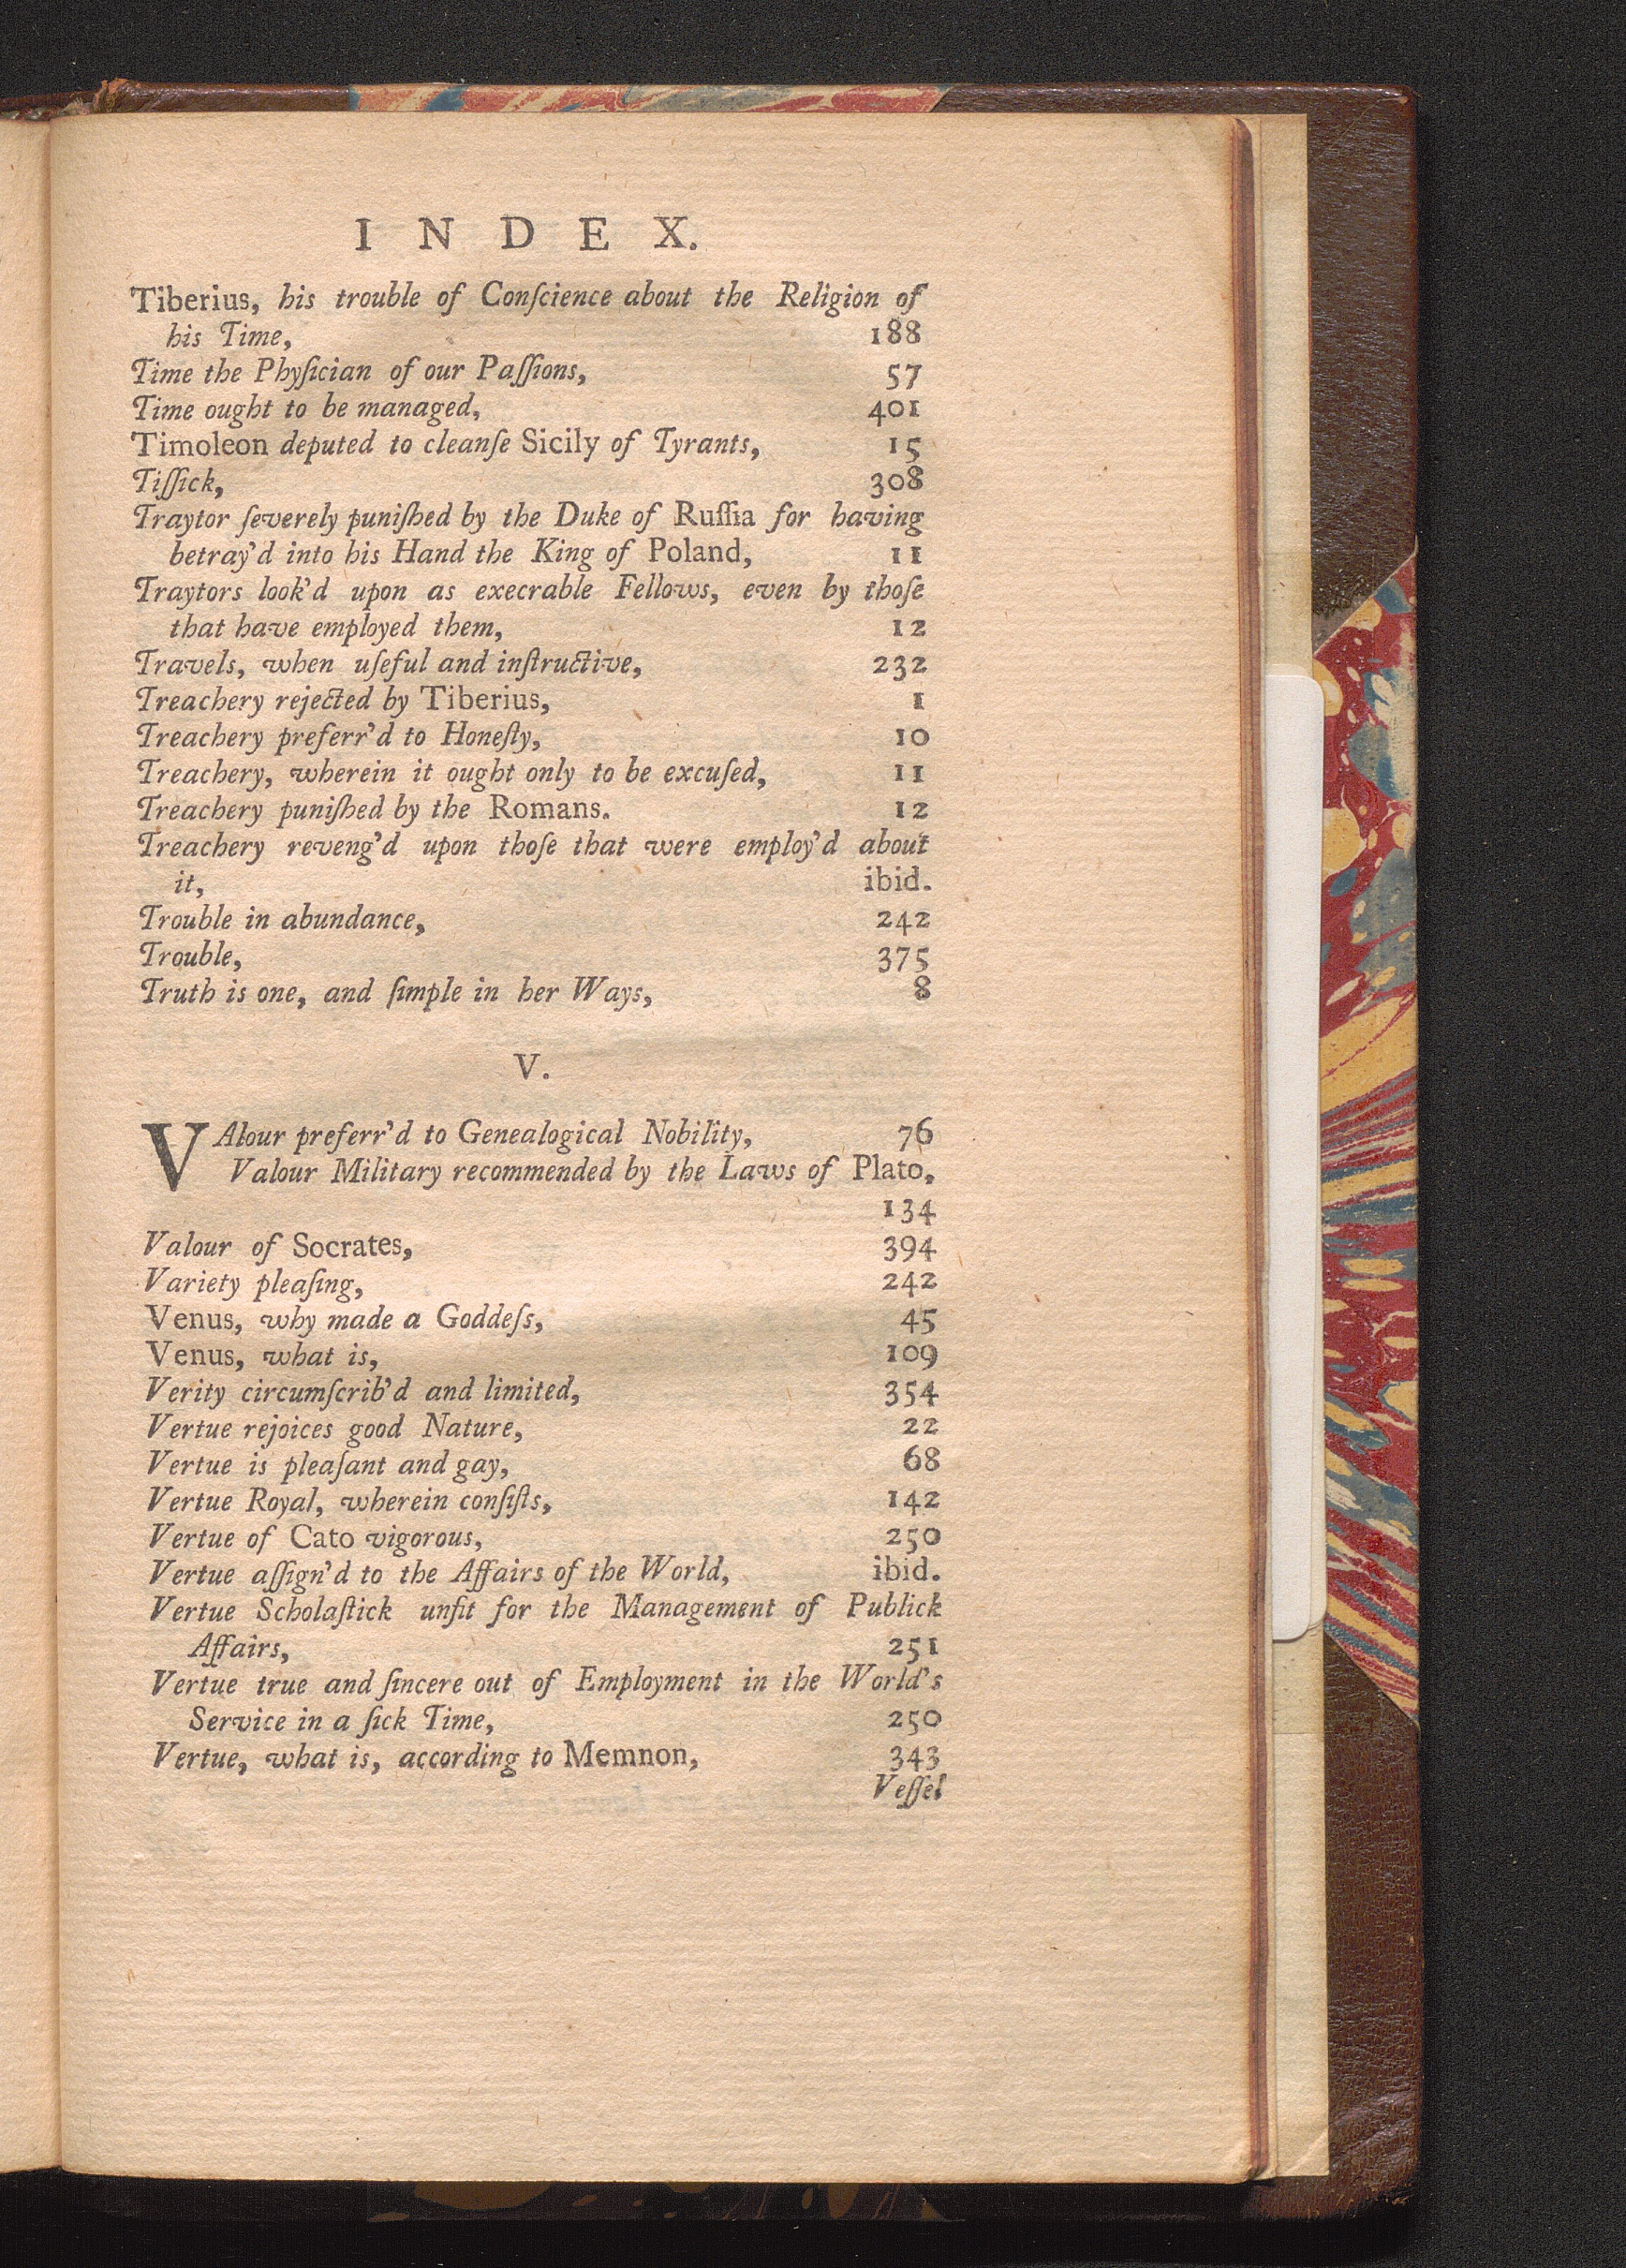 INDEX.
Tiberius, his trouble of Conſcience about the Religion of
his Time, 188
Time the Phyſician of our Paſſions, 57
Time ought to be managed, 401
Timoleon deputed to cleanſe Sicily of Tyrants, 15
Tiſſick, 308
Traytor ſeverely puniſhed by the Duke of Ruſſia for having
betray'd into his Hand the King of Poland, 11
Traytors look'd upon as execrable Fellows, even by thoſe
that have employed them, 12
Travels, when uſeful and inſtructive, 232
Treachery rejected by Tiberius, 1
Treachery preferr'd to Honeſty, 10
Treachery, wherein it ought only to be excuſed, 11
Treachery puniſhed by the Romans. 12
Treachery reveng'd upon thoſe that were employ'd about
it, ibid.
Trouble in abundance, 242
Trouble, 375
Truth is one, and ſimple in her Ways, 8
V.
VAlour preferr'd to Genealogical Nobility, 76
Valour Military recommended by the Laws of Plato,
134
Valour of Socrates, 394
Variety pleaſing, 242
Venus, why made a Goddeſs, 45
Venus, what is, 109
Verity circumſcrib'd and limited, 354
Vertue rejoices good Nature, 22
Vertue is pleaſant and gay, 68
Vertue Royal, wherein conſiſts, 142
Vertue of Cato vigorous, 250
Vertue aſſign'd to the Affairs of the World, ibid.
Vertue Scholaſtick unfit for the Management of Publick
Affairs, 251
Vertue true and ſincere out of Employment in the World's
Service in a ſick Time, 250
Vertue, what is, according to Memnon, 343
Veſſel